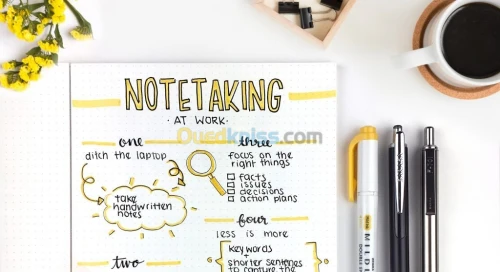 NOTETAKING
- AT WORK -
Ouedkniss.com
one
ditch the laptop
take
handwritten
notes
two
three
focus on the
right things
facts
issues
decisions
action plans
four
less is more
keywords
+
shorter sentences
to capture the
MILD